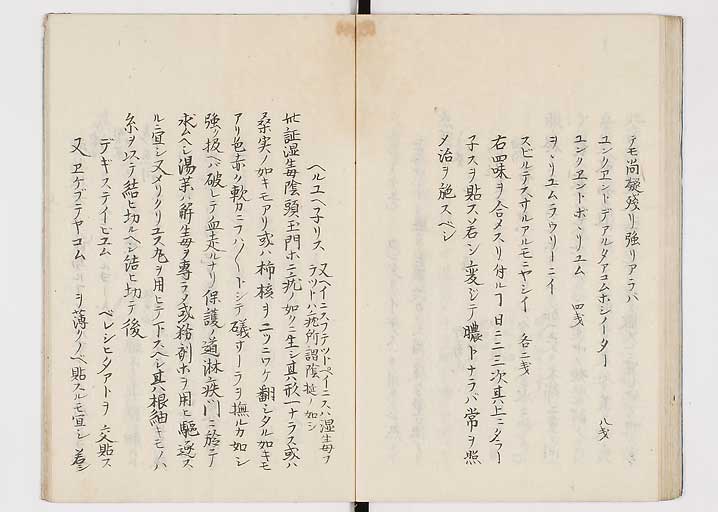 テモ尚凝残リ強リアラバ
ユンクエントデアルタアコムホシノーター 八戔
ユンクエントポヽリユム 四戔
ヲヽリユムラウリーニイ
スピルテスサルアルモニヤシイ 各二戔
右四味ヲ合メスリ付ルヿ日ニ二三次其上ニ
子スヲ貼ス若シ変ジテ膿トナラバ常ヲ照
メ治ヲ施スベシ
ヘルユヘ子リス 又ヘイニスフテツトペイニスハ湿生毎ヲ
ラツトハ疣所謂陰挺ノ如シ
此証湿毎陰頭玉門ホニ疣ノ如クニ生シ其形一ナラス或ハ
桑実ノ如キモアリ或ハ柿核ヲ二ツニワケ翻シタル如キモ
アリ色赤ク軟カニフハ〳〵トシテ礒ヲ撫ルカ如シ
強ク扱ヘバ破レテ血走ルナリ保護ノ道淋疾門ニ於テ
求ムヘシ湯薬ハ解毎ヲ専ラメ或務剤ホヲ用ヒ駆逐ス
ルニ宜シ又メリクリユス丸ヲ用ヒテントスヘシ其ハ根細キモノハ
糸ヲ以テ結ヒ切ルヘシ結ヒ切テ後
デギステイヒユム ベレシヒタアトヲ 交貼ス
又 ヱケブテヤコム ヲ薄クノベ貼スルモ宜シ 蓋シ